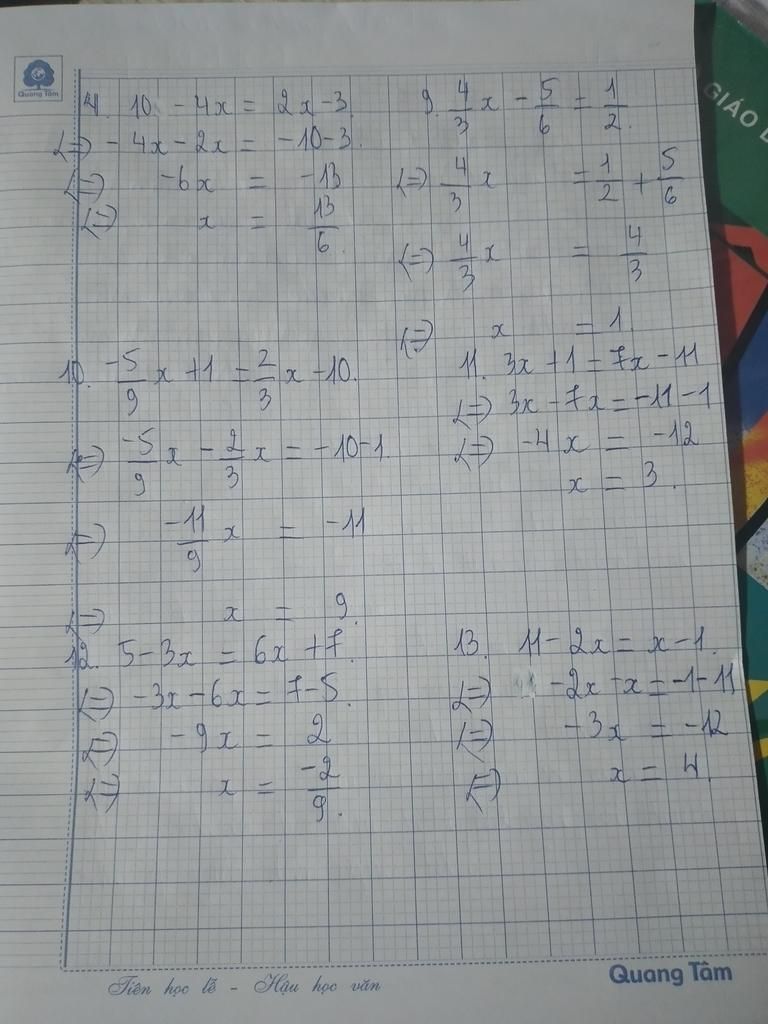 Quang Tâm
GIÁO D
4. 10 - 4x = 2x - 3
<=> - 4x - 2x = -10 - 3.
<=> -6x = -13
<=> x = 13/6.
9. 4/3 x - 5/6 = 1/2.
<=> 4/3 x = 1/2 + 5/6
<=> 4/3 x = 4/3
<=> x = 1
10. -5/9 x + 1 = 2/3 x - 10.
<=> -5/9 x - 2/3 x = -10 - 1
<=> -11/9 x = -11
<=> x = 9.
11. 3x + 1 = 7x - 11
<=> 3x - 7x = -11 - 1
<=> -4x = -12
x = 3.
12. 5 - 3x = 6x + 7.
<=> -3x - 6x = 7 - 5.
<=> -9x = 2
<=> x = -2/9.
13. 11 - 2x = x - 1.
<=> -2x - x = -1 - 11
<=> -3x = -12
<=> x = 4.
Tiên học lễ - Hậu học văn
Quang Tâm